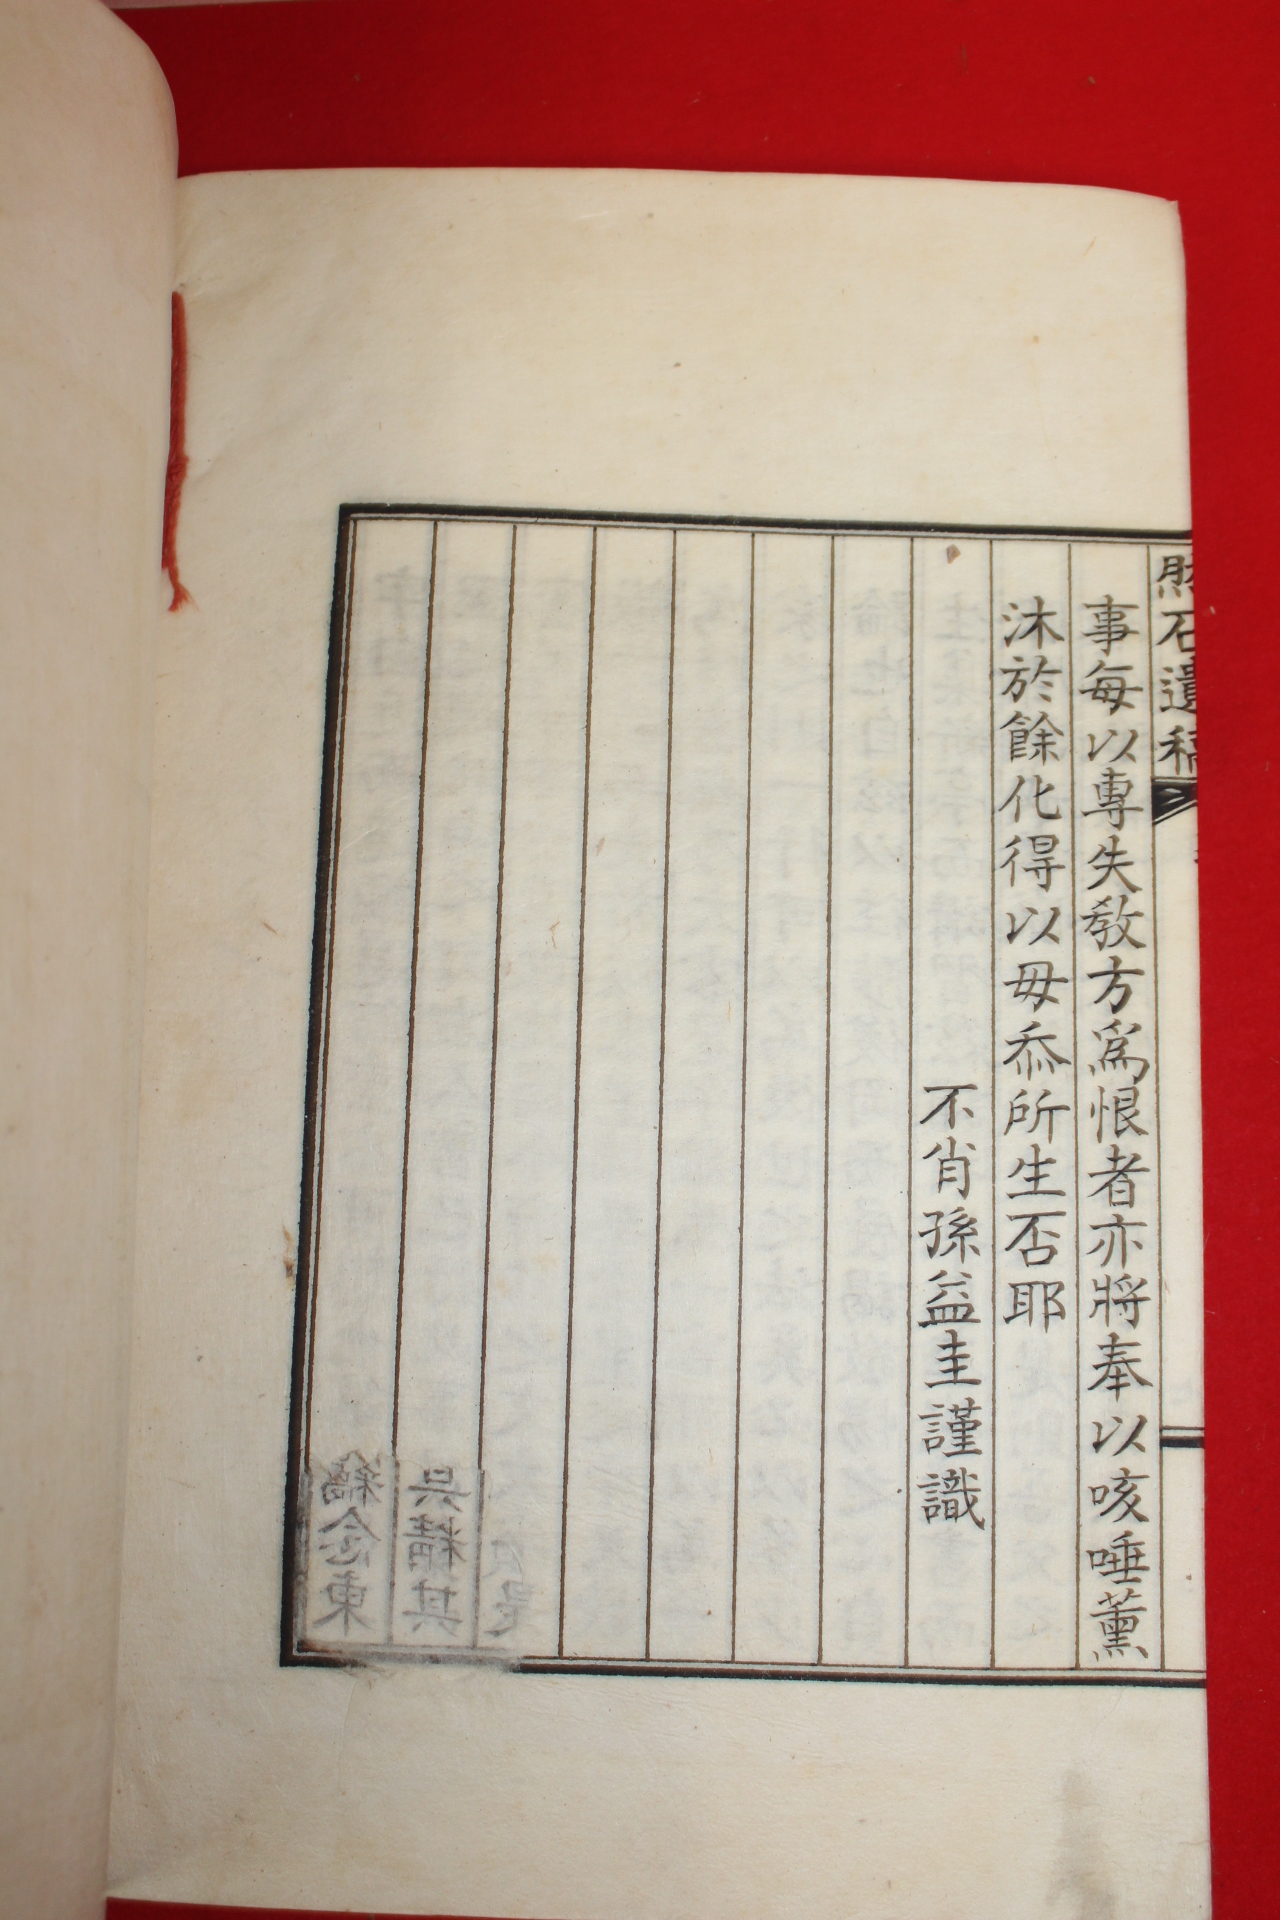 石遺稿
事每以專失教方爲恨者亦將奉以咳唾薰
沐於餘化得以毋忝所生否耶
不肖孫益圭謹識